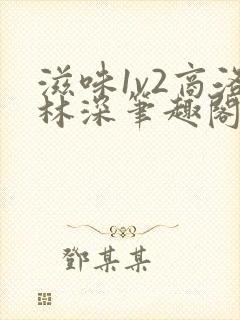 滋味1v2高洛
林深筆趣閣
鄧某某